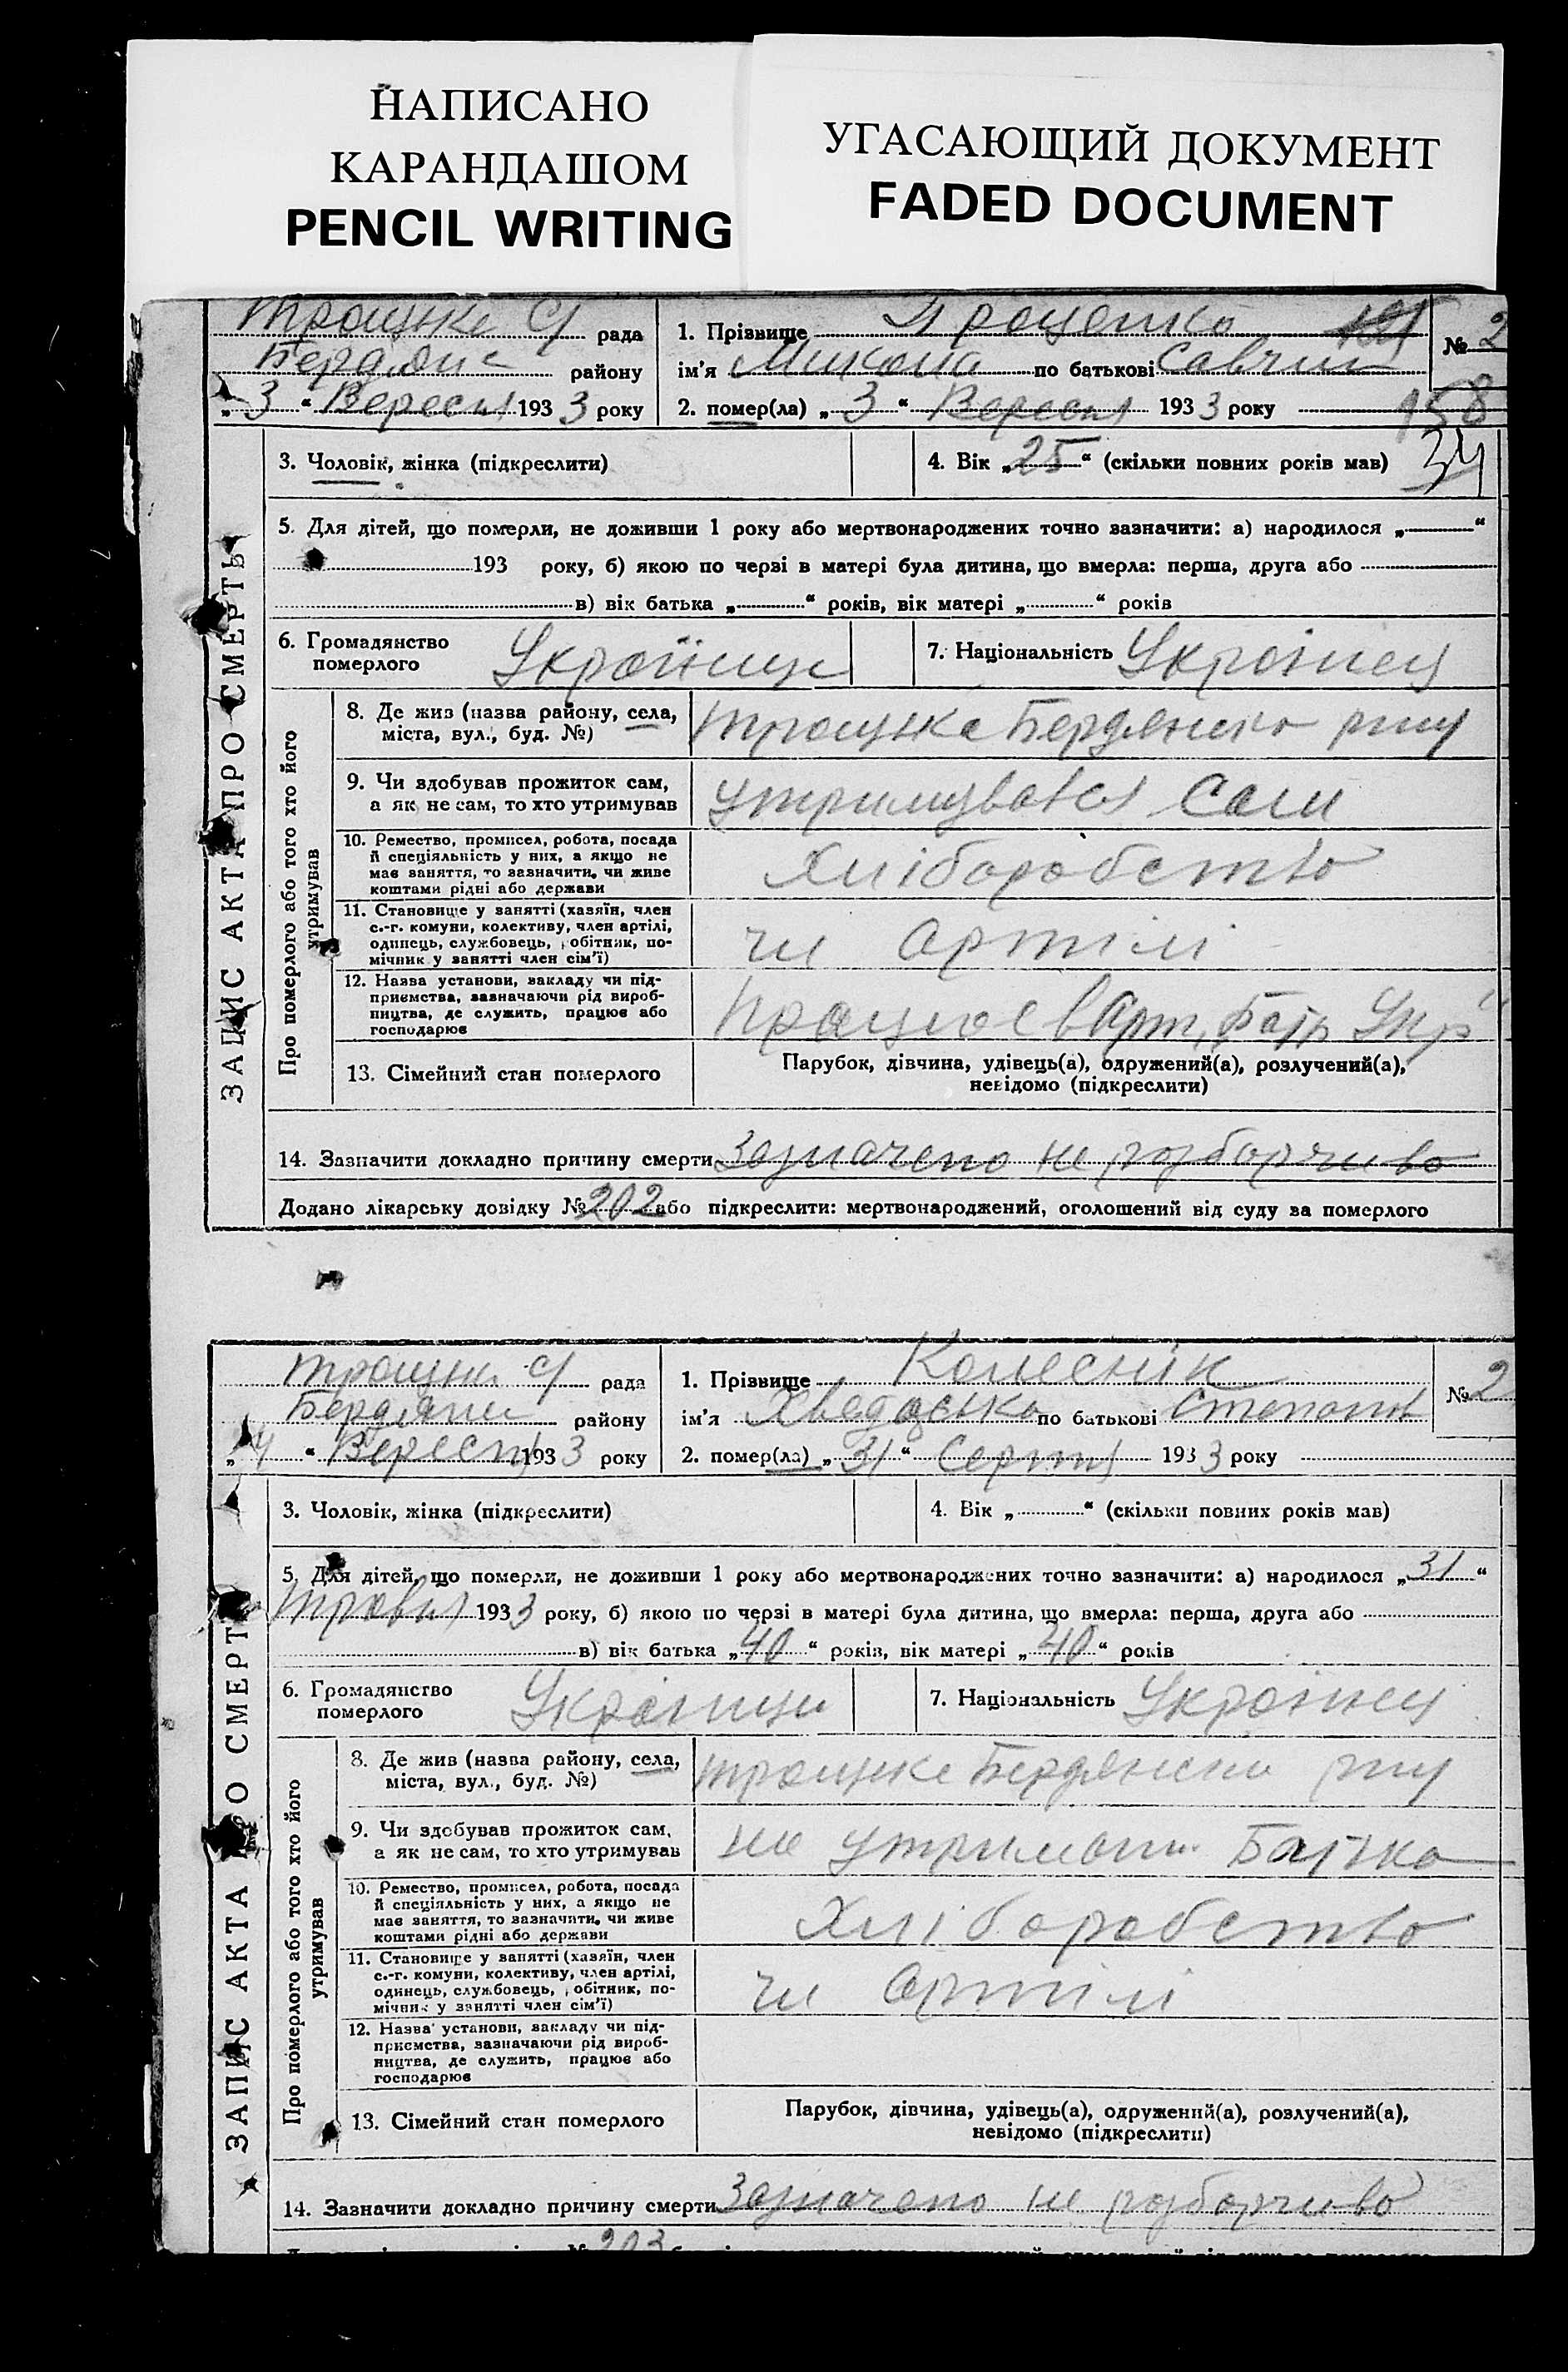 НАПИСАНО
КАРАНДАШОМ
PENCIL WRITING
УГАСАЮЩИЙ ДОКУМЕНТ
FADED DOCUMENT
ЗАПИС АКТА ПРО СМЕРТЬ
Троцьке С/ рада
Бердянс району
„3“ Вересня 1933 року
1. Прізвище Проценко
№ 2
ім'я Микола по батькові Савчин
2. помер(ла) „3“ Вересня 1933 року
158
3. Чоловік, жінка (підкреслити)
4. Вік „25“ (скільки повних років мав)
34
5. Для дітей, що померли, не доживши 1 року або мертвонароджених точно зазначити: а) народилося „ “
193 року, б) якою по черзі в матері була дитина, що вмерла: перша, друга або
в) вік батька „ “ років, вік матері „ “ років
6. Громадянство
померлого
Українци
7. Національність Українец
Про померлого або того хто його
утримував
8. Де жив (назва району, села,
міста, вул., буд. №)
Троцьке Бердянсько
9. Чи здобував прожиток сам,
а як не сам, то хто утримував
утримувався Сам
10. Ремество, промисел, робота, посада
й спеціяльність у них, а якщо не
має заняття, то зазначити, чи живе
коштами рідні або держави
Хліборобство
11. Становище у занятті (хазяїн, член
с.-г. комуни, колективу, член артілі,
одинець, службовець, робітник, по-
мічник у занятті член сім'ї)
чл Артілі
12. Назва установи, закладу чи під-
приємства, зазначаючи рід вироб-
ництва, де служить, працює або
господарює
працює в Арт,
13. Сімейний стан померлого
Парубок, дівчина, удівець(а), одружений(а), розлучений(а),
невідомо (підкреслити)
14. Зазначити докладно причину смерти Зазначено не розборчиво
Додано лікарську довідку № 202 або підкреслити: мертвонароджений, оголошений від суду за померлого
ЗАПИС АКТА ПРО СМЕРТЬ
Троцьк С/ рада
Бердянс району
„4“ Вересня 1933 року
1. Прізвище Колеснік
№ 2
ім'я Хведоська по батькові Степанов
2. помер(ла) „31“ Серпня 1933 року
3. Чоловік, жінка (підкреслити)
4. Вік „ “ (скільки повних років мав)
5. Для дітей, що померли, не доживши 1 року або мертвонароджених точно зазначити: а) народилося „31“
Травня 1933 року, б) якою по черзі в матері була дитина, що вмерла: перша, друга або
в) вік батька „40“ років, вік матері „40“ років
6. Громадянство
померлого
Українци
7. Національність Українец
Про померлого або того хто його
утримував
8. Де жив (назва району, села,
міста, вул., буд. №)
Троцьке Бердянсько
9. Чи здобував прожиток сам,
а як не сам, то хто утримував
на утриман Батька
10. Ремество, промисел, робота, посада
й спеціяльність у них, а якщо не
має заняття, то зазначити, чи живе
коштами рідні або держави
Хліборобство
11. Становище у занятті (хазяїн, член
с.-г. комуни, колективу, член артілі,
одинець, службовець, робітник, по-
мічник у занятті член сім'ї)
чл Артілі
12. Назва установи, закладу чи під-
приємства, зазначаючи рід вироб-
ництва, де служить, працює або
господарює
13. Сімейний стан померлого
Парубок, дівчина, удівець(а), одружений(а), розлучений(а),
невідомо (підкреслити)
14. Зазначити докладно причину смерти Зазначено не розборчиво
203